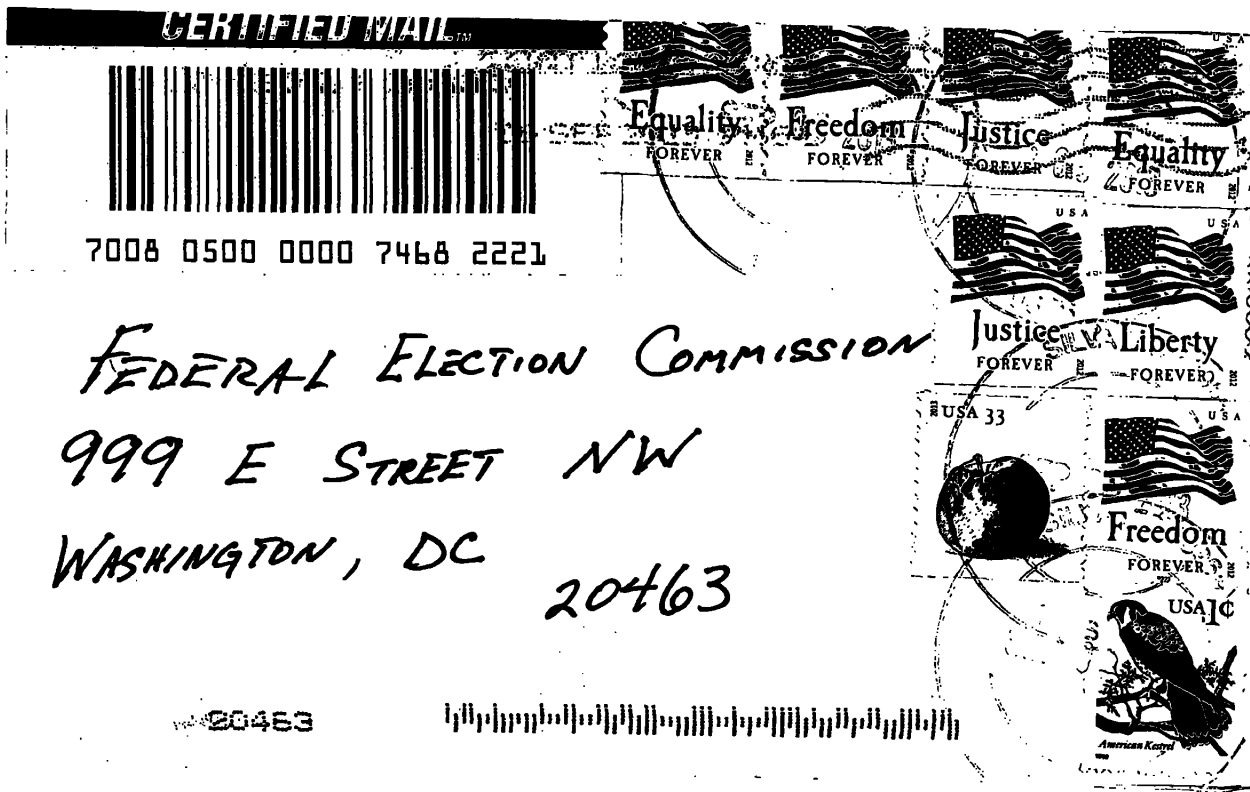 CERTIFIED MAIL™
7008 0500 0000 7468 2221
Equality
FOREVER
2012
Freedom
FOREVER
2012
Justice
FOREVER
2012
USA
Equality
FOREVER
2012
USA
Justice
FOREVER
2012
USA
Liberty
FOREVER
2012
2013
USA 33
USA
Freedom
FOREVER
2012
USA 1¢
American Kestrel
FEDERAL ELECTION COMMISSION
999 E STREET NW
WASHINGTON, DC
20463
20463